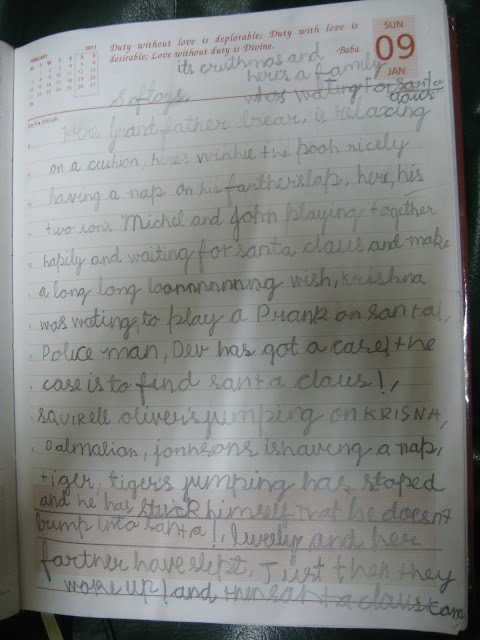 Duty without love is deplorable; Duty with love is
desirable; Love without duty is Divine.
Baba
2011
SUN
09
JAN
its cruthmas and
here's a family
Softoys. whos wating for santa
claus
Here Grand father brear, is relaxing
on a cushion, here's winhie the pooh nicely
having a nap on his fartherslap, here, his
two sons Michel and John playing together
hapily and waiting for santa claus and make
a long long loannnnnnng wish, Krishna
was wating, to play a Prank on santa!,
Police man, Dev has got a case! the
case is to find santa claus!,
squirell oliver's jumping on KRISNA,
Dalmalian, jonhsons ishaving a nap,
tiger, tigers jumping has stoped
and he has struck himself that he doesnt
bump into santa!, lively and her
farther have slept, Just then they
woke up! and then santa claus came